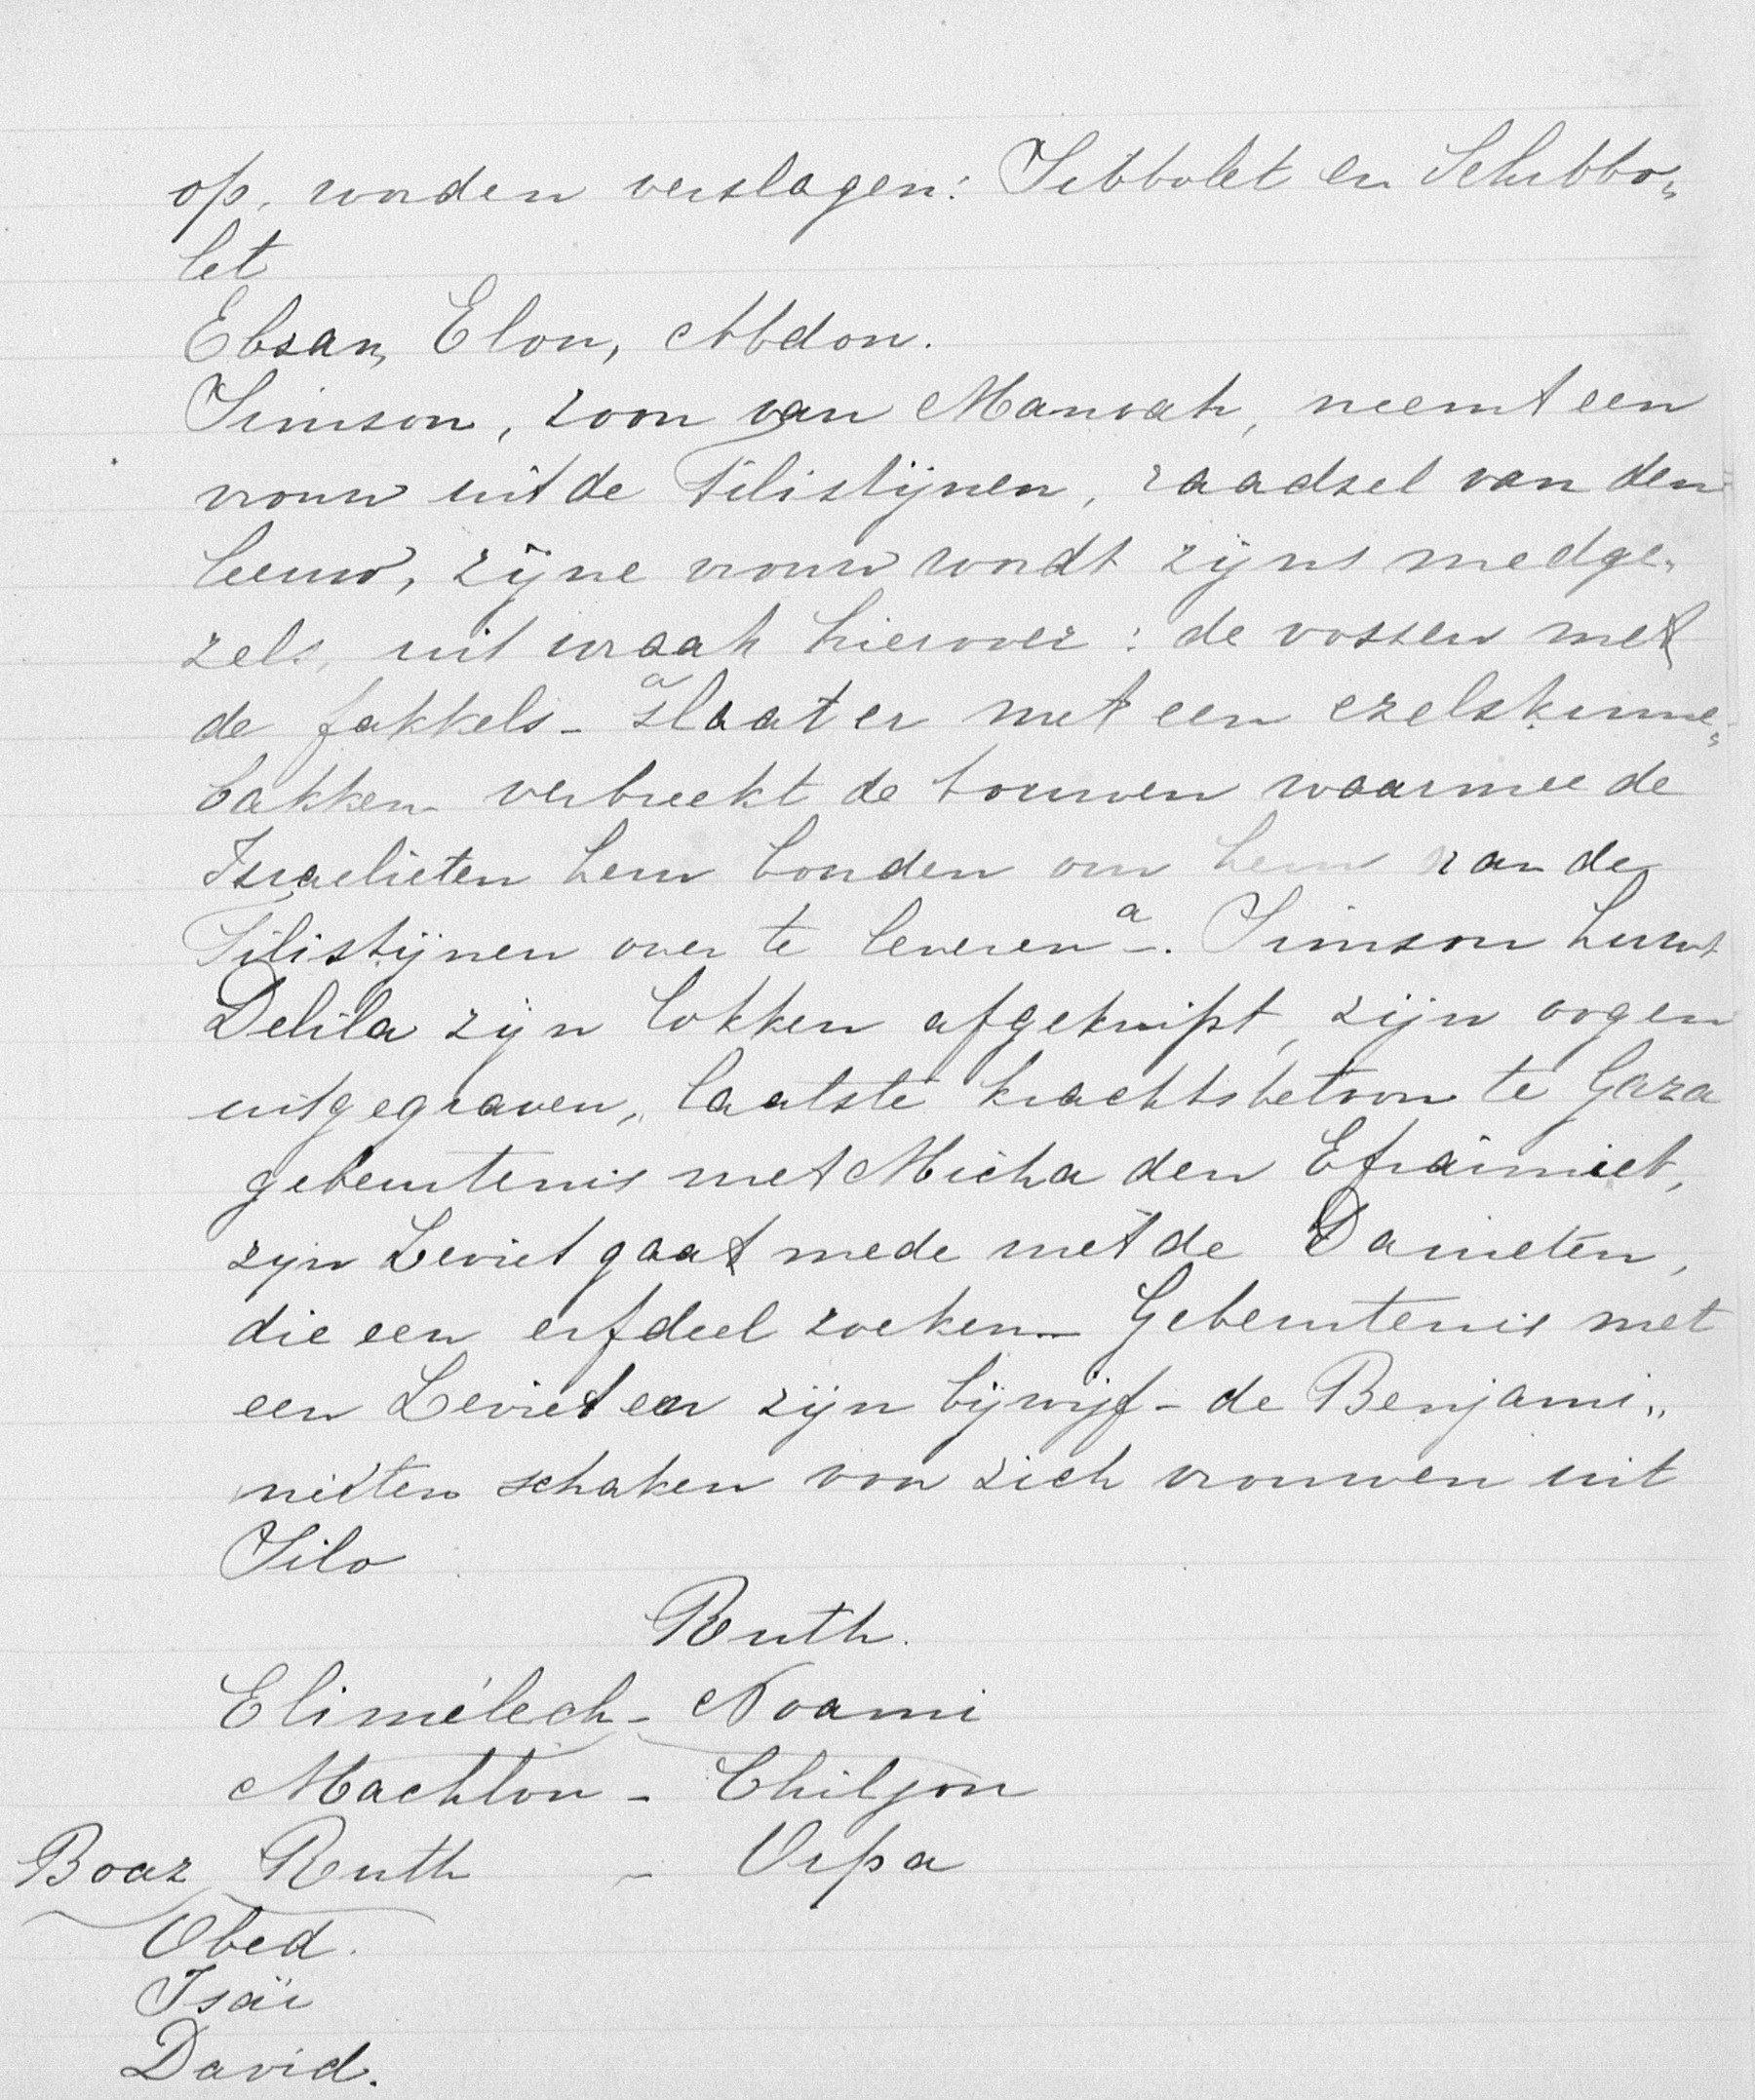 op, worden verslagen: Sibbolet en Schibbo„
let
Ebsan, Elon, Abdon.
Simson, zoon van Manoah, neemt een
vrouw uit de Filistijnen, raadsel van den
leeuw, zijne vrouw wordt zijns medge„
zels, uit wraak hierover: de vossen met
de fakkels – a slaat er met een ezelskinne„
bakken verbreekt de touwen waarmee de
Israelieten hem bonden om hem aan de
Filistijnen over te leveren a –. Simson huwt
Delila zijn lokken afgeknipt, zijn oogen
uitgegraven, laatste krachtsbetoon te Gaza
gebeurtenis met Micha den Efraimiet,
zijn Leviet gaat mede met de Danieten,
die een erfdeel zoeken – Gebeurtenis met
een Leviet en zijn bijwijf – de Benjami„
nieten schaken voor zich vrouwen uit
Silo
Ruth.
Elimélech – Noami
Machlon – Chiljon
Boaz Ruth – Orpa
Obed.
Isaï
David.